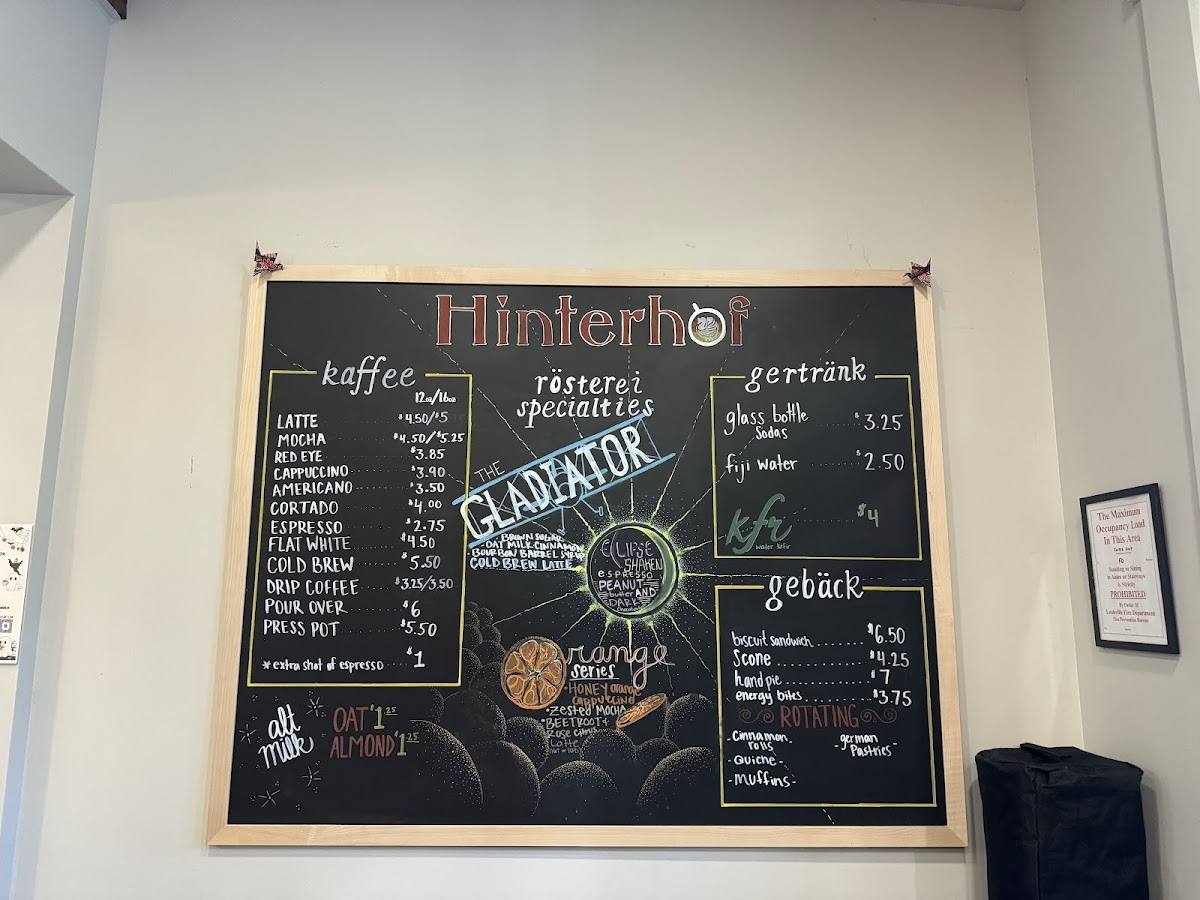 Hinterhof
kaffee
12oz/16oz
LATTE $4.50/$5
MOCHA $4.50/$5.25
RED EYE $3.85
CAPPUCCINO $3.90
AMERICANO $3.50
CORTADO $4.00
ESPRESSO $2.75
FLAT WHITE $4.50
COLD BREW $5.50
DRIP COFFEE $3.25/3.50
POUR OVER $6
PRESS POT $5.50
*extra shot of espresso $1
alt
milk
OAT $1.25
ALMOND $1.25
rösterei
specialties
THE
GLADIATOR
BROWN SUGAR
OAT MILK CINNAMON
BOURBON BARREL SYRUP
COLD BREW LATTE
ECLIPSE
SHAKEN
espresso
PEANUT
butter AND
DARK
Chocolate
Orange
series
• HONEY orange
cappuccino
• Zested MOCHA
• BEETROOT +
Rose citrus
Latte
gertränk
glass bottle
Sodas $3.25
fiji water $2.50
kfr $4
water kefir
gebäck
biscuit sandwich $6.50
Scone $4.25
hand pie $7
energy bites $3.75
ROTATING
- Cinnamon
rolls -
- Quiche -
- Muffins -
german
- Pastries -
The Maximum
Occupancy Load
In This Area
Standing or Sitting
in Aisles or Stairways
is Strictly
PROHIBITED
By Order of
Louisville Fire Department
Fire Prevention Bureau